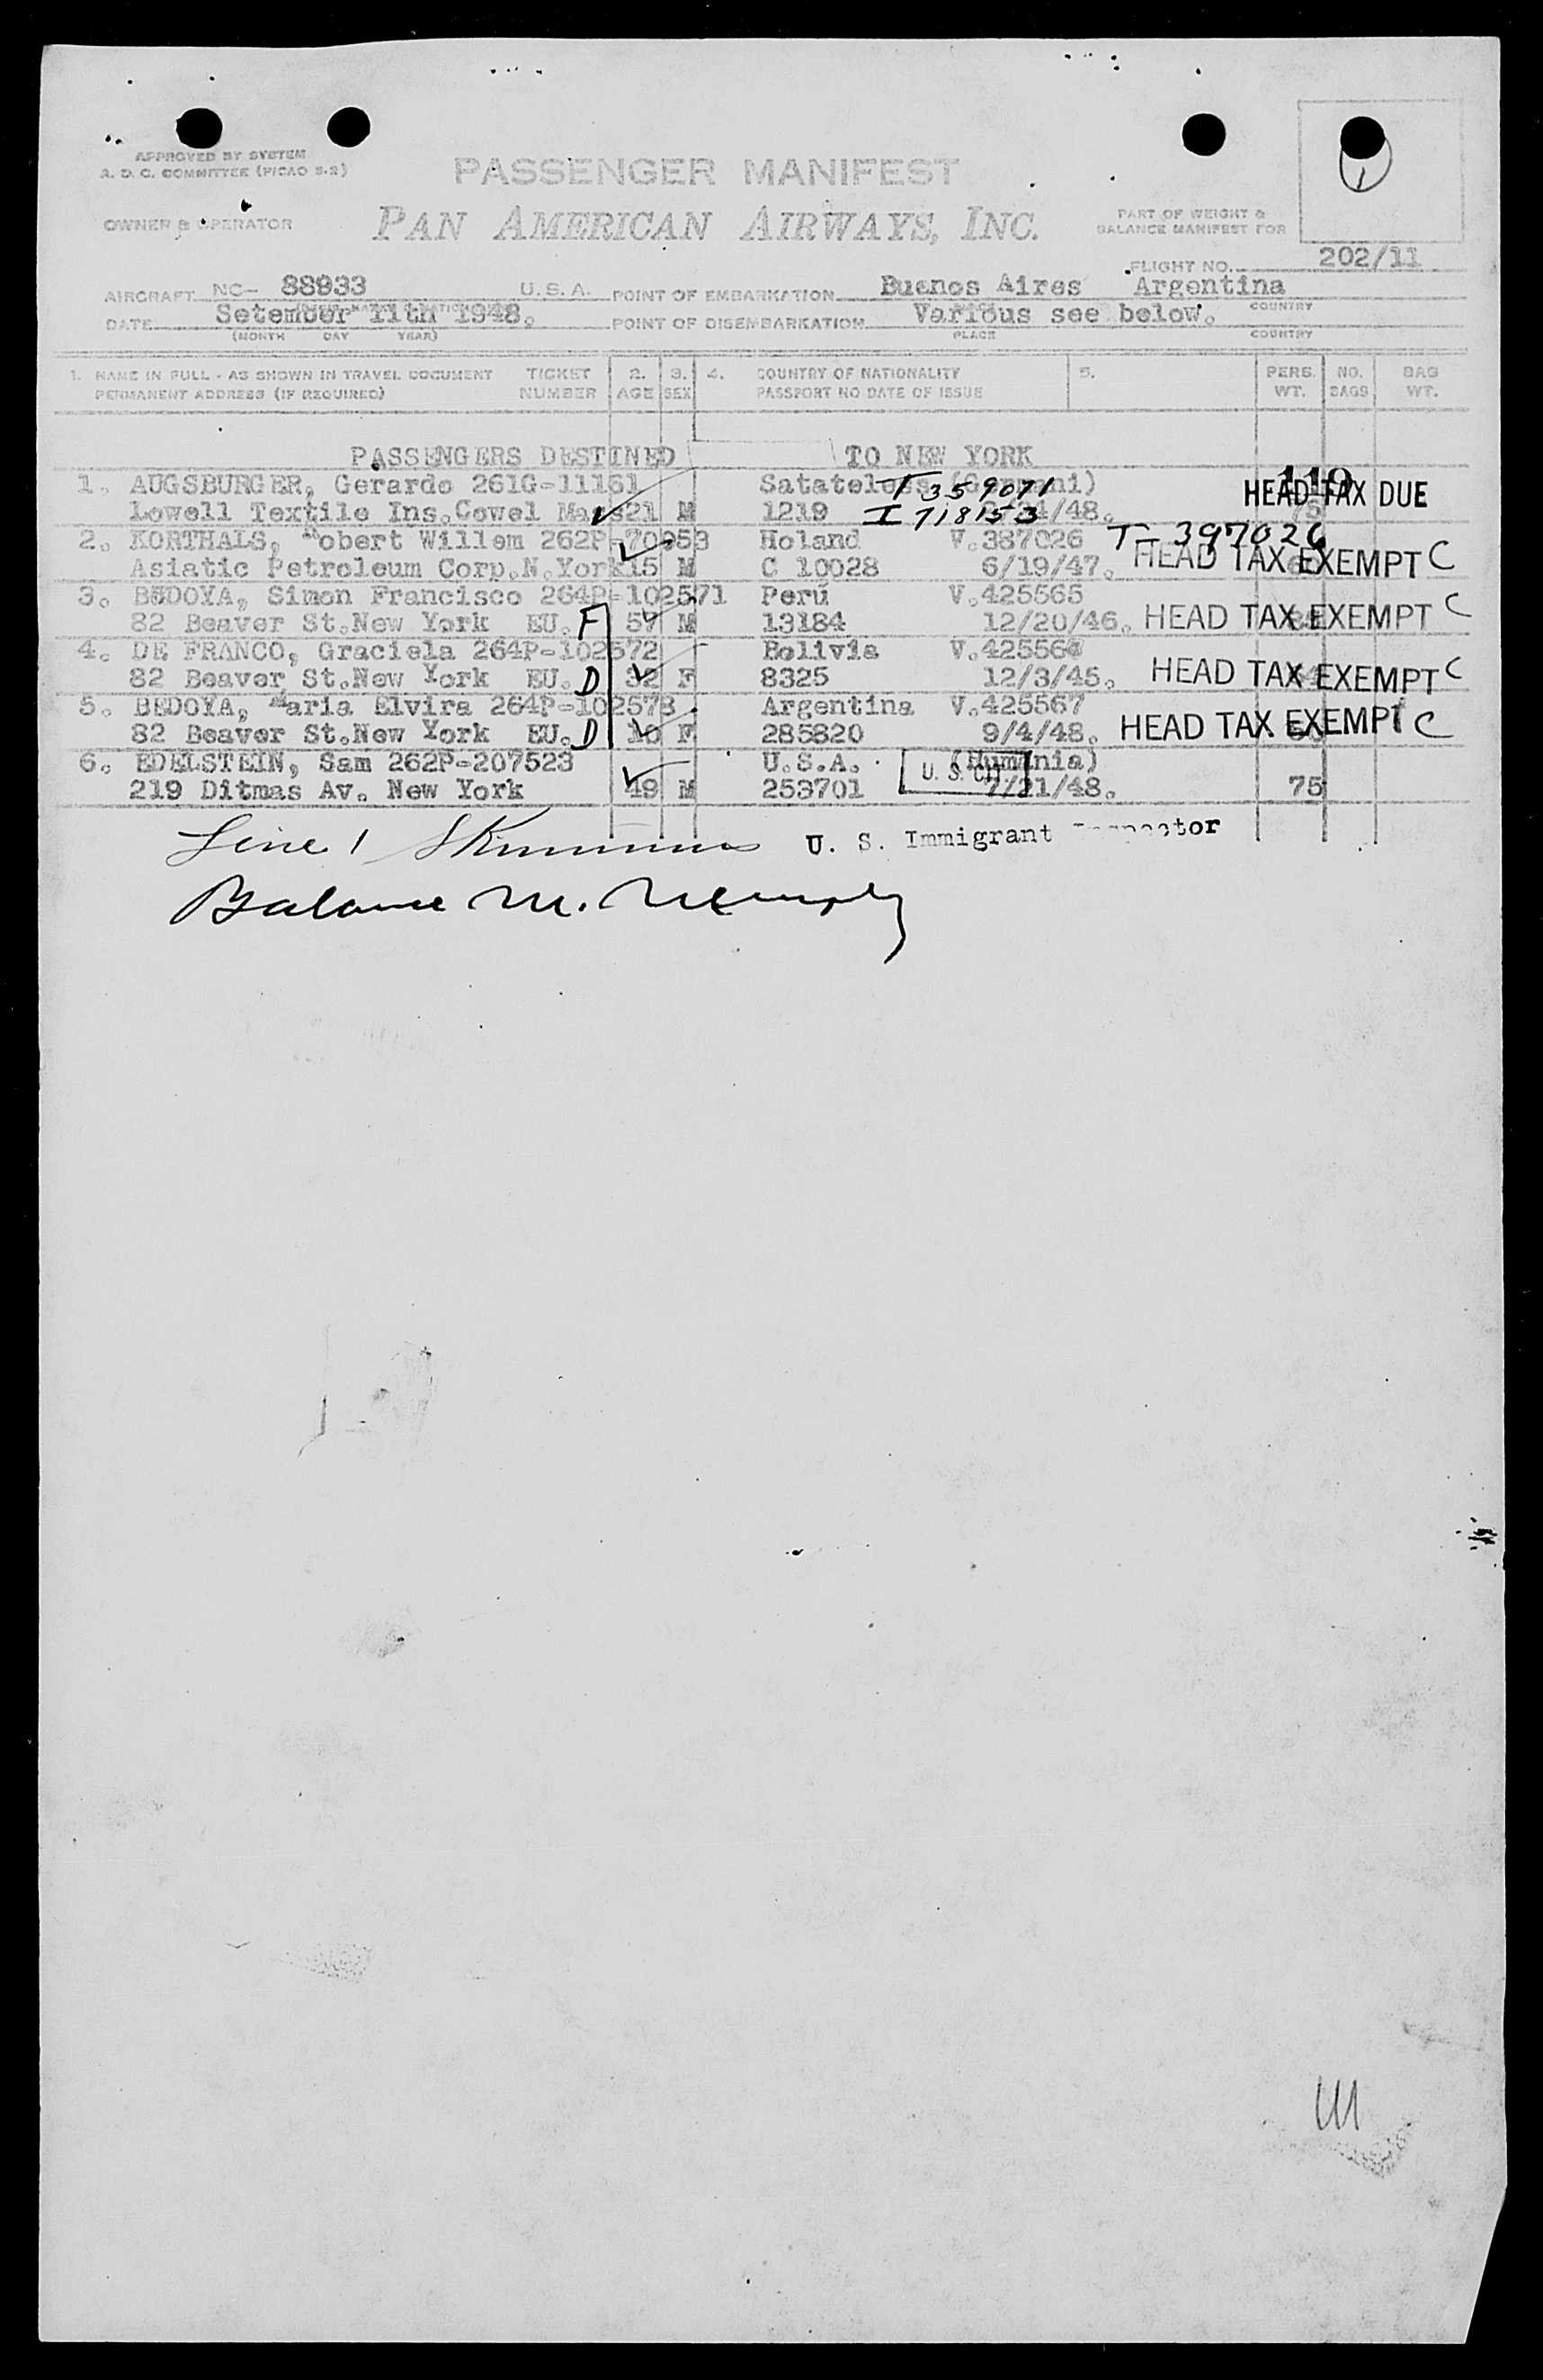 APPROVED BY SYSTEM
A. D. C. COMMITTEE (PICAO S-2)
PASSENGER MANIFEST
OWNER & OPERATOR
PAN AMERICAN AIRWAYS, INC.
PART OF WEIGHT &
BALANCE MANIFEST FOR
FLIGHT NO. 202/11
AIRCRAFT NC- 88933 U.S.A. POINT OF EMBARKATION Buenos Aires Argentina
DATE Setember 11th 1948. POINT OF DISEMBARKATION Various see below.
COUNTRY
(MONTH DAY YEAR) PLACE COUNTRY
1. NAME IN FULL - AS SHOWN IN TRAVEL DOCUMENT TICKET 2. 3. 4. COUNTRY OF NATIONALITY 5. PERS. NO. BAG
PERMANENT ADDRESS (IF REQUIRED) NUMBER AGE SEX PASSPORT NO DATE OF ISSUE WT. BAGS WT.
PASSENGERS DESTINED TO NEW YORK
1. AUGSBURGER, Gerardo 261G-11161 Satateless (Germani) T 359071 119
Lowell Textile Ins.Cowel Mass 21 M 1219 I 718153 /48. HEAD TAX DUE
2. KORTHALS, Robert Willem 262P-70953 Holand V.387026 T-397026
Asiatic Petroleum Corp.N.York 15 M C 10028 6/19/47. HEAD TAX EXEMPT C
3. BEDOYA, Simon Francisco 264P-102571 Perú V.425565
82 Beaver St.New York EU. F 57 M 13184 12/20/46. HEAD TAX EXEMPT C
4. DE FRANCO, Graciela 264P-102572 Bolivia V.425566
82 Beaver St.New York EU. D 32 F 8325 12/3/45. HEAD TAX EXEMPT C
5. BEDOYA, Maria Elvira 264P-102573 Argentina V.425567
82 Beaver St.New York EU. D F 285820 9/4/48. HEAD TAX EXEMPT C
6. EDELSTEIN, Sam 262P-207523 U.S.A. (Rumania)
219 Ditmas Av. New York 49 M 253701 U. S. CIT 7/21/48. 75
Line 1 U. S. Immigrant Inspector
Balance M.